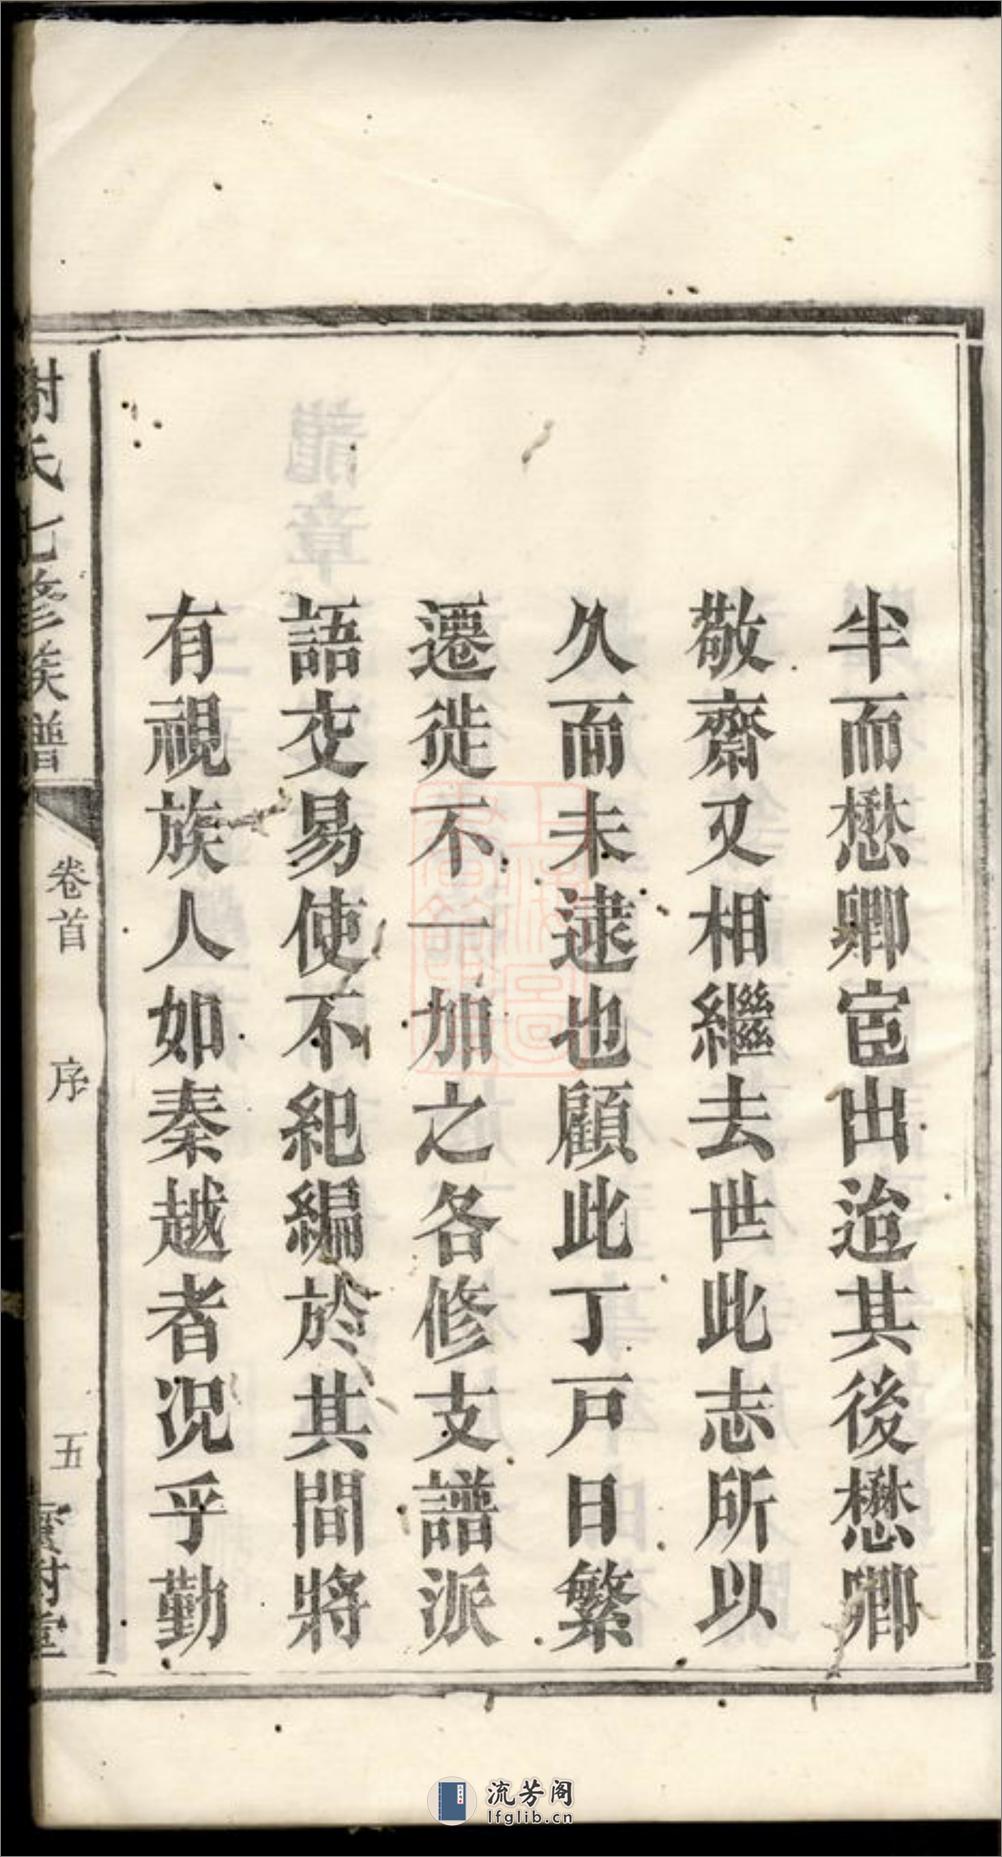 半而懋卿宦出迨其後懋卿
敬齋又相繼去世此志所以
久而未逮也顧此丁戸日繁
遷徙不一加之各修支譜派
語交易使不紀編於其間將
有視族人如秦越者况乎勤
謝氏七修族譜
卷首
序
五
寶樹堂
流芳阁
lfglib.cn